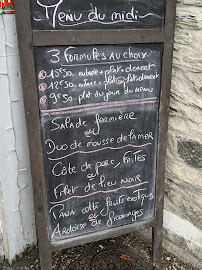 Menu du midi
3 formules au choix
15€50. entrée + plat + dessert
12€50. entrée + plat plat + dessert
9€50. plat du jour du menu
Salade fermière
ou
Duo de mousse de la mer
Côte de porc, frites
ou
Filet de lieu noir
Pana cotta fruits exotiques
ou
Ardoise de fromages